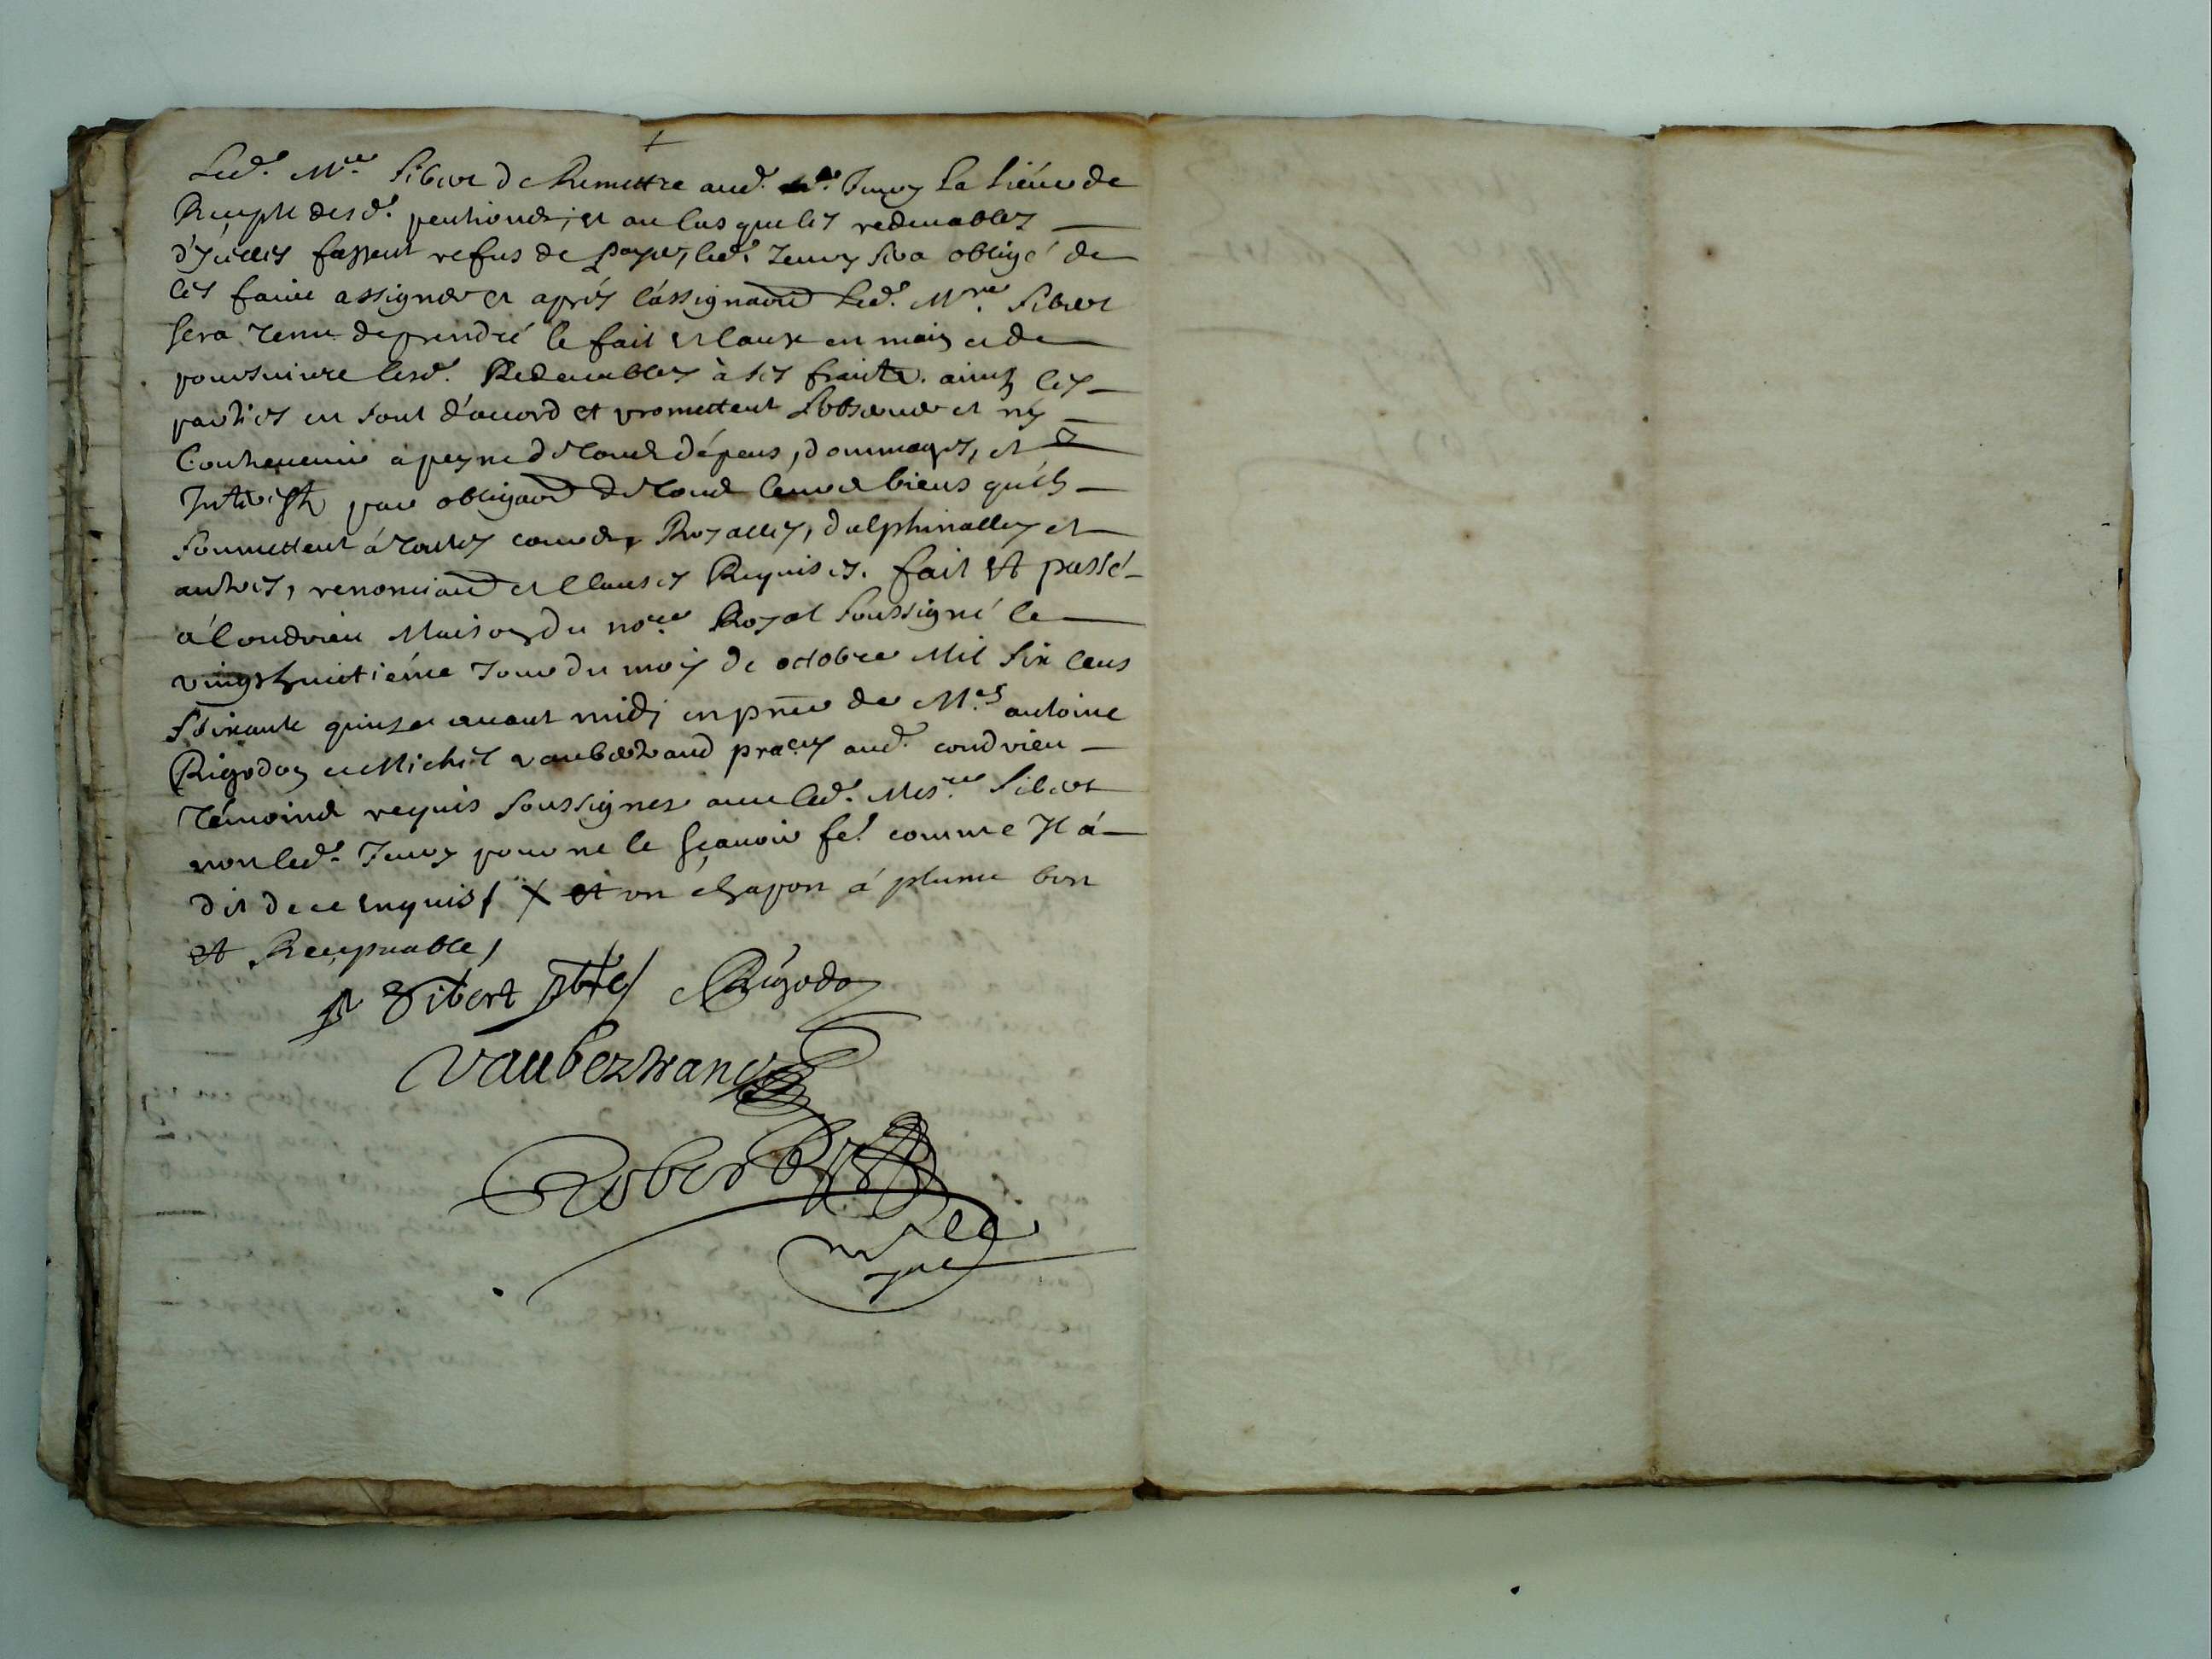 Led.t M.re Sibert de Remettre aud.t Juny La Liéue de
Recepte desd.t pentions, et au cas que les redeuables
d'jcelles fassent refus de payer, led.t Juny sera obligé de
les faire assigner et aprés l'assignaõn Led.t M.re Sibert
sera tenu de prendre le fait et cause en main et de
poursuiure lesd.t Redeuables à ses fraits. ainsy les
parties en sont d'accord et promettent L'obseruer et n'y
Contreuenir à peyne de tous dépens, dommages, et
Intérests par obligaõn de tous leurs biens qu'ils
soumettent á toutes cours Royalles, dalphinalles et
autres, renonciaõn et Clauses Requises. fait et passé
á Condrieu Maison du no.re Royal soussigné le
vingt huictiéme Jour du mois de octobre Mil six cens
soixante quinze auant midj en pñce de M.es antoine
Rigodon et Michel vaubertrand pra.ens aud.t condrieu
témoins requis soussignes auec led.t Mes.re Sibert
non led.t Juny pour ne le sçauoir fe.t comme Il á
dit de ce enquis / X et vn chapon á plume bon
et Receptuable /
Sibert ptre / Rigodon
Vaubertrand
Robert
no.re